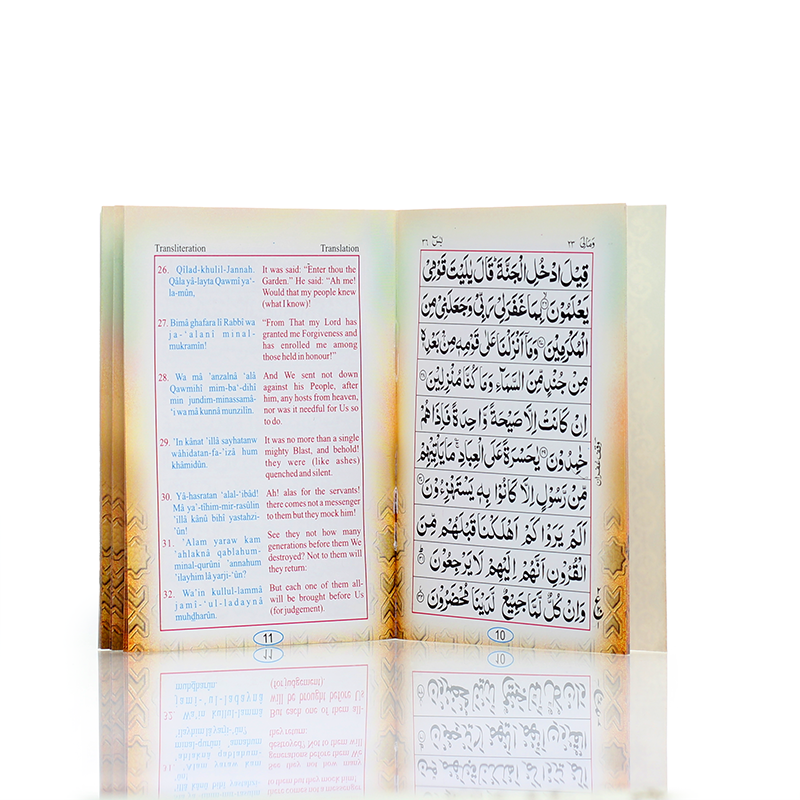 يٰسٓ ٣٦
وَمَالِىَ ٢٣
قِيْلَ ادْخُلِ الْجَنَّةَ ؕ قَالَ يٰلَيْتَ قَوْمِىْ
يَعْلَمُوْنَ ۙ﴿٢٦﴾ بِمَا غَفَرَلِىْ رَبِّىْ وَجَعَلَنِىْ مِنَ
الْمُكْرَمِيْنَ ﴿٢٧﴾ وَمَاۤ اَنْزَلْنَا عَلٰى قَوْمِهٖ مِنْۢ بَعْدِهٖ
مِنْ جُنْدٍ مِّنَ السَّمَآءِ وَمَا كُنَّا مُنْزِلِيْنَ ﴿٢٨﴾
اِنْ كَانَتْ اِلَّا صَيْحَةً وَّاحِدَةً فَاِذَا هُمْ
خٰمِدُوْنَ ﴿٢٩﴾ يٰحَسْرَةً عَلَى الْعِبَادِ ؔ مَا يَاْتِيْهِمْ
مِّنْ رَّسُوْلٍ اِلَّا كَانُوْا بِهٖ يَسْتَهْزِءُوْنَ ﴿٣٠﴾
اَلَمْ يَرَوْا كَمْ اَهْلَكْنَا قَبْلَهُمْ مِّنَ
الْقُرُوْنِ اَنَّهُمْ اِلَيْهِمْ لَا يَرْجِعُوْنَ ﴿٣١﴾
وَاِنْ كُلٌّ لَّمَّا جَمِيْعٌ لَّدَيْنَا مُحْضَرُوْنَ ﴿٣٢﴾
وقف غفران
ع
10
Transliteration
26. Qîlad-khulil-Jannah.
Qâla yâ-layta Qawmî ya‘-
la-mûn,
27. Bimâ ghafara lî Rabbî wa
ja-‘alanî minal-
mukramîn!
28. Wa mâ ’anzalnâ ‘alâ
Qawmihî mim-ba‘-dihî
min jundim-minassamâ-
’i wa mâ kunnâ munzilîn.
29. ’In kânat ’illâ sayhatanw
wâhidatan-fa-’izâ hum
khâmidûn.
30. Yâ-hasratan ‘alal-‘ibâd!
Mâ ya’-tîhim-mir-rasûlin
’illâ kânû bihî yastahzi-
’ûn!
31. ’Alam yaraw kam
’ahlaknâ qablahum-
minal-qurûni ’annahum
’ilayhim lâ yarji-‘ûn?
32. Wa’in kullul-lammâ
jamî-‘ul-ladaynâ
muhḍharûn.
Translation
It was said: “Enter thou the
Garden.” He said: “Ah me!
Would that my people knew
(what I know)!
“From That my Lord has
granted me Forgiveness and
has enrolled me among
those held in honour!”
And We sent not down
against his People, after
him, any hosts from heaven,
nor was it needful for Us so
to do.
It was no more than a single
mighty Blast, and behold!
they were (like ashes)
quenched and silent.
Ah! alas for the servants!
there comes not a messenger
to them but they mock him!
See they not how many
generations before them We
destroyed? Not to them will
they return:
But each one of them all-
will be brought before Us
(for judgement).
11